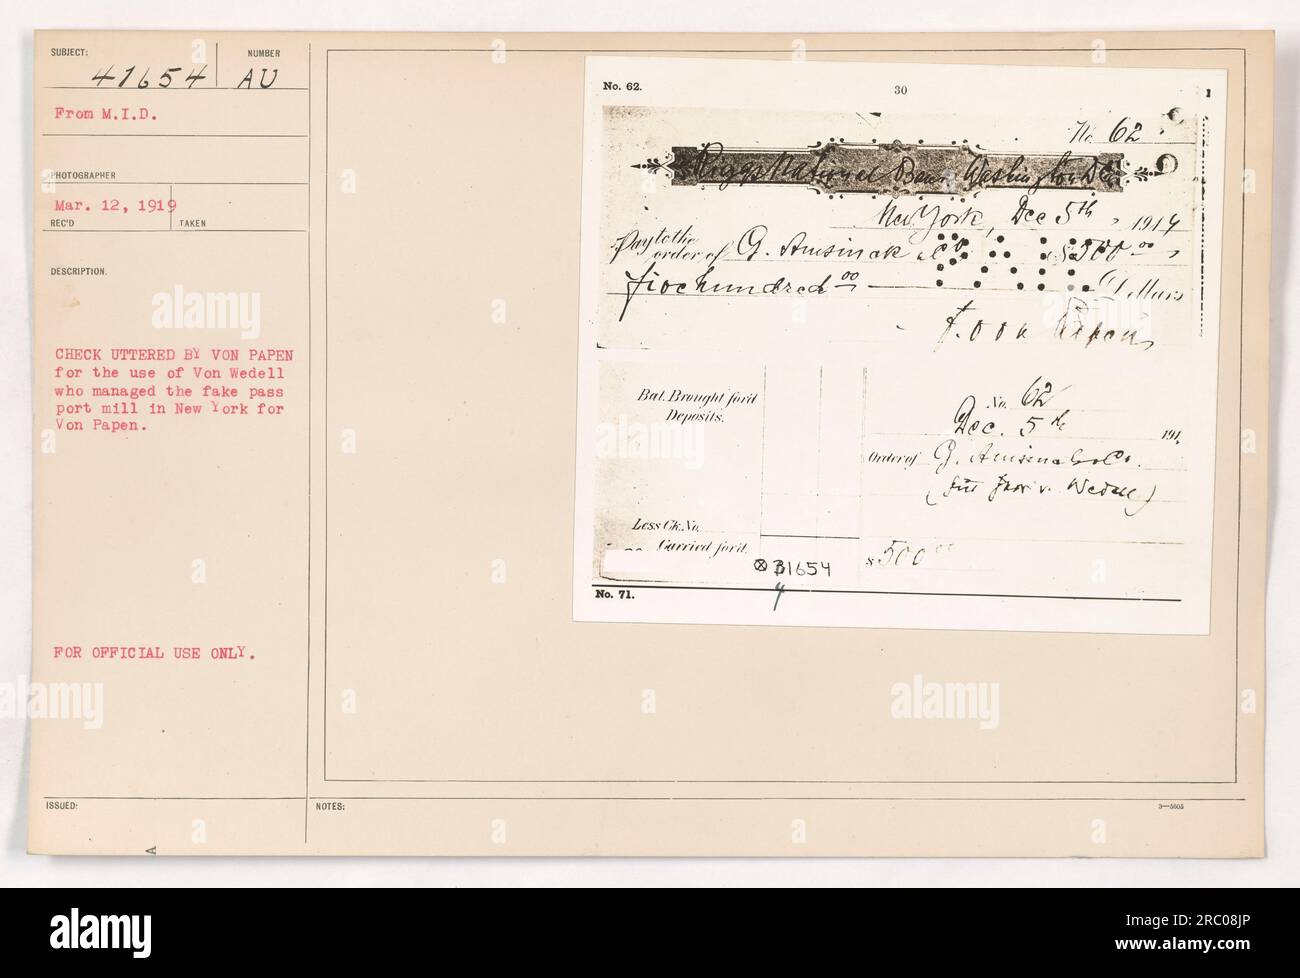 SUBJECT:
NUMBER
41654 AU
From M.I.D.
PHOTOGRAPHER
Mar. 12, 1919
REC'D
TAKEN
DESCRIPTION.
CHECK UTTERED BY VON PAPEN
for the use of Von Wedell
who managed the fake pass
port mill in New York for
Von Papen.
FOR OFFICIAL USE ONLY.
ISSUED:
A
NOTES:
3—5605
No. 62.
30
1
No 62
Riggs National Bank Washington DC
New York, Dec 5th, 1914
Pay to the order of G. Amsinck & Co $500 00
five hundred 00 Dollars
Papen
Bal. Brought for'd
Deposits.
No. 62
Dec. 5th 191
Order of G. Amsinck & Co.
(für v. Wedell)
Less Ck. No.
Carried for'd.
$ 500 00
B1654
4
No. 71.
alamy
alamy
Image ID: 2RC08JP
www.alamy.com